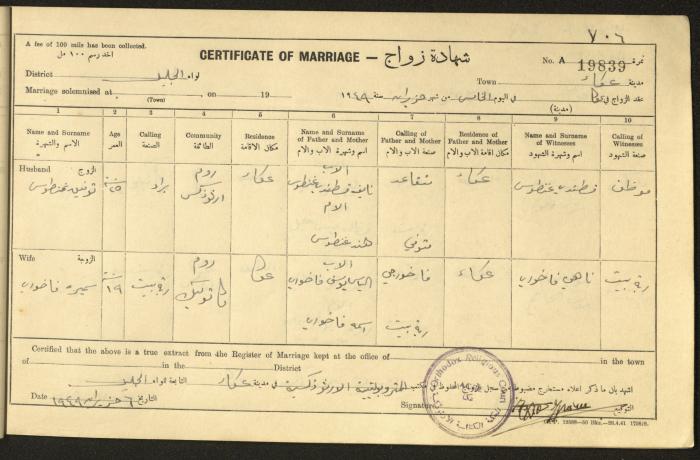 ٧٠٦
A fee of 100 mils has been collected.
اخذ رسم ١٠٠ مل
CERTIFICATE OF MARRIAGE — شهادة زواج
No. A 19839 نمرة
District لواء الجليل
Town مدينة عكاء
Marriage solemnised at on 19
(Town)
عقد الزواج في عكا في اليوم الخامس من شهر حزيران سنة ١٩٤٩
(مدينة)
1 2 3 4 5 6 7 8 9 10
Name and Surname
الاسم والشهرة
Age
العمر
Calling
الصنعة
Community
الطائفة
Residence
مكان الاقامة
Name and Surname of Father and Mother
اسم وشهرة الاب والام
Calling of Father and Mother
صنعة الاب والام
Residence of Father and Mother
مكان اقامة الاب والام
Name and Surname of Witnesses
اسم وشهرة الشهود
Calling of Witnesses
صنعة الشهود
Husband الزوج
توفيق غنطوس
سنة ٢٥
براد
روم ارثوذكس
عكاء
الاب
نايف قسطندي غنطوس
الام
هند غنطوس
متقاعد
متوفي
عكاء
قسطندي غنطوس
موظف
Wife الزوجة
سميره فاخوري
سنة ١٩
ربة بيت
روم كاثوليك
عكا
الاب
الياس يوسف فاخوري
اسمه فاخوري
فاخورجي
ربة بيت
عكاء
ناهي فاخوري
ربة بيت
Certified that the above is a true extract from the Register of Marriage kept at the office of in the town
of in the District
اشهد بان ما ذكر اعلاه مستخرج مضبوط من سجل الزواج المحفوظ في مكتب المتروبوليتية الارثوذكسية في مدينة عكاء التابعة للواء الجليل
Date التاريخ ٦ حزيران ١٩٤٩
Signature التوقيع
Orthodox Religious Court
عكا
G.P.P. 12588—50 Bks.—28.4.41